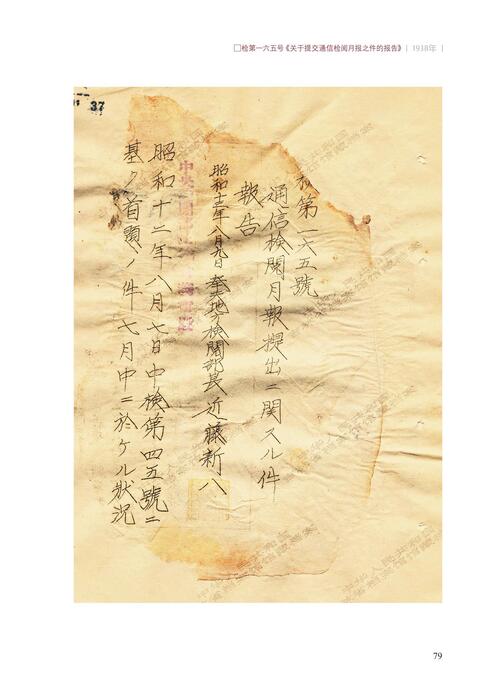 □检第一六五号《关于提交通信检阅月报之件的报告》 | 1938年 |
37
検第一六五號
通信検閲月報提出ニ関スル件
報告
昭和十二年八月九日 奉天地方検閲部長 近藤新八
昭和十二年八月七日中検第四五號ニ
基ク首題ノ件七月中ニ於ケル状況
79